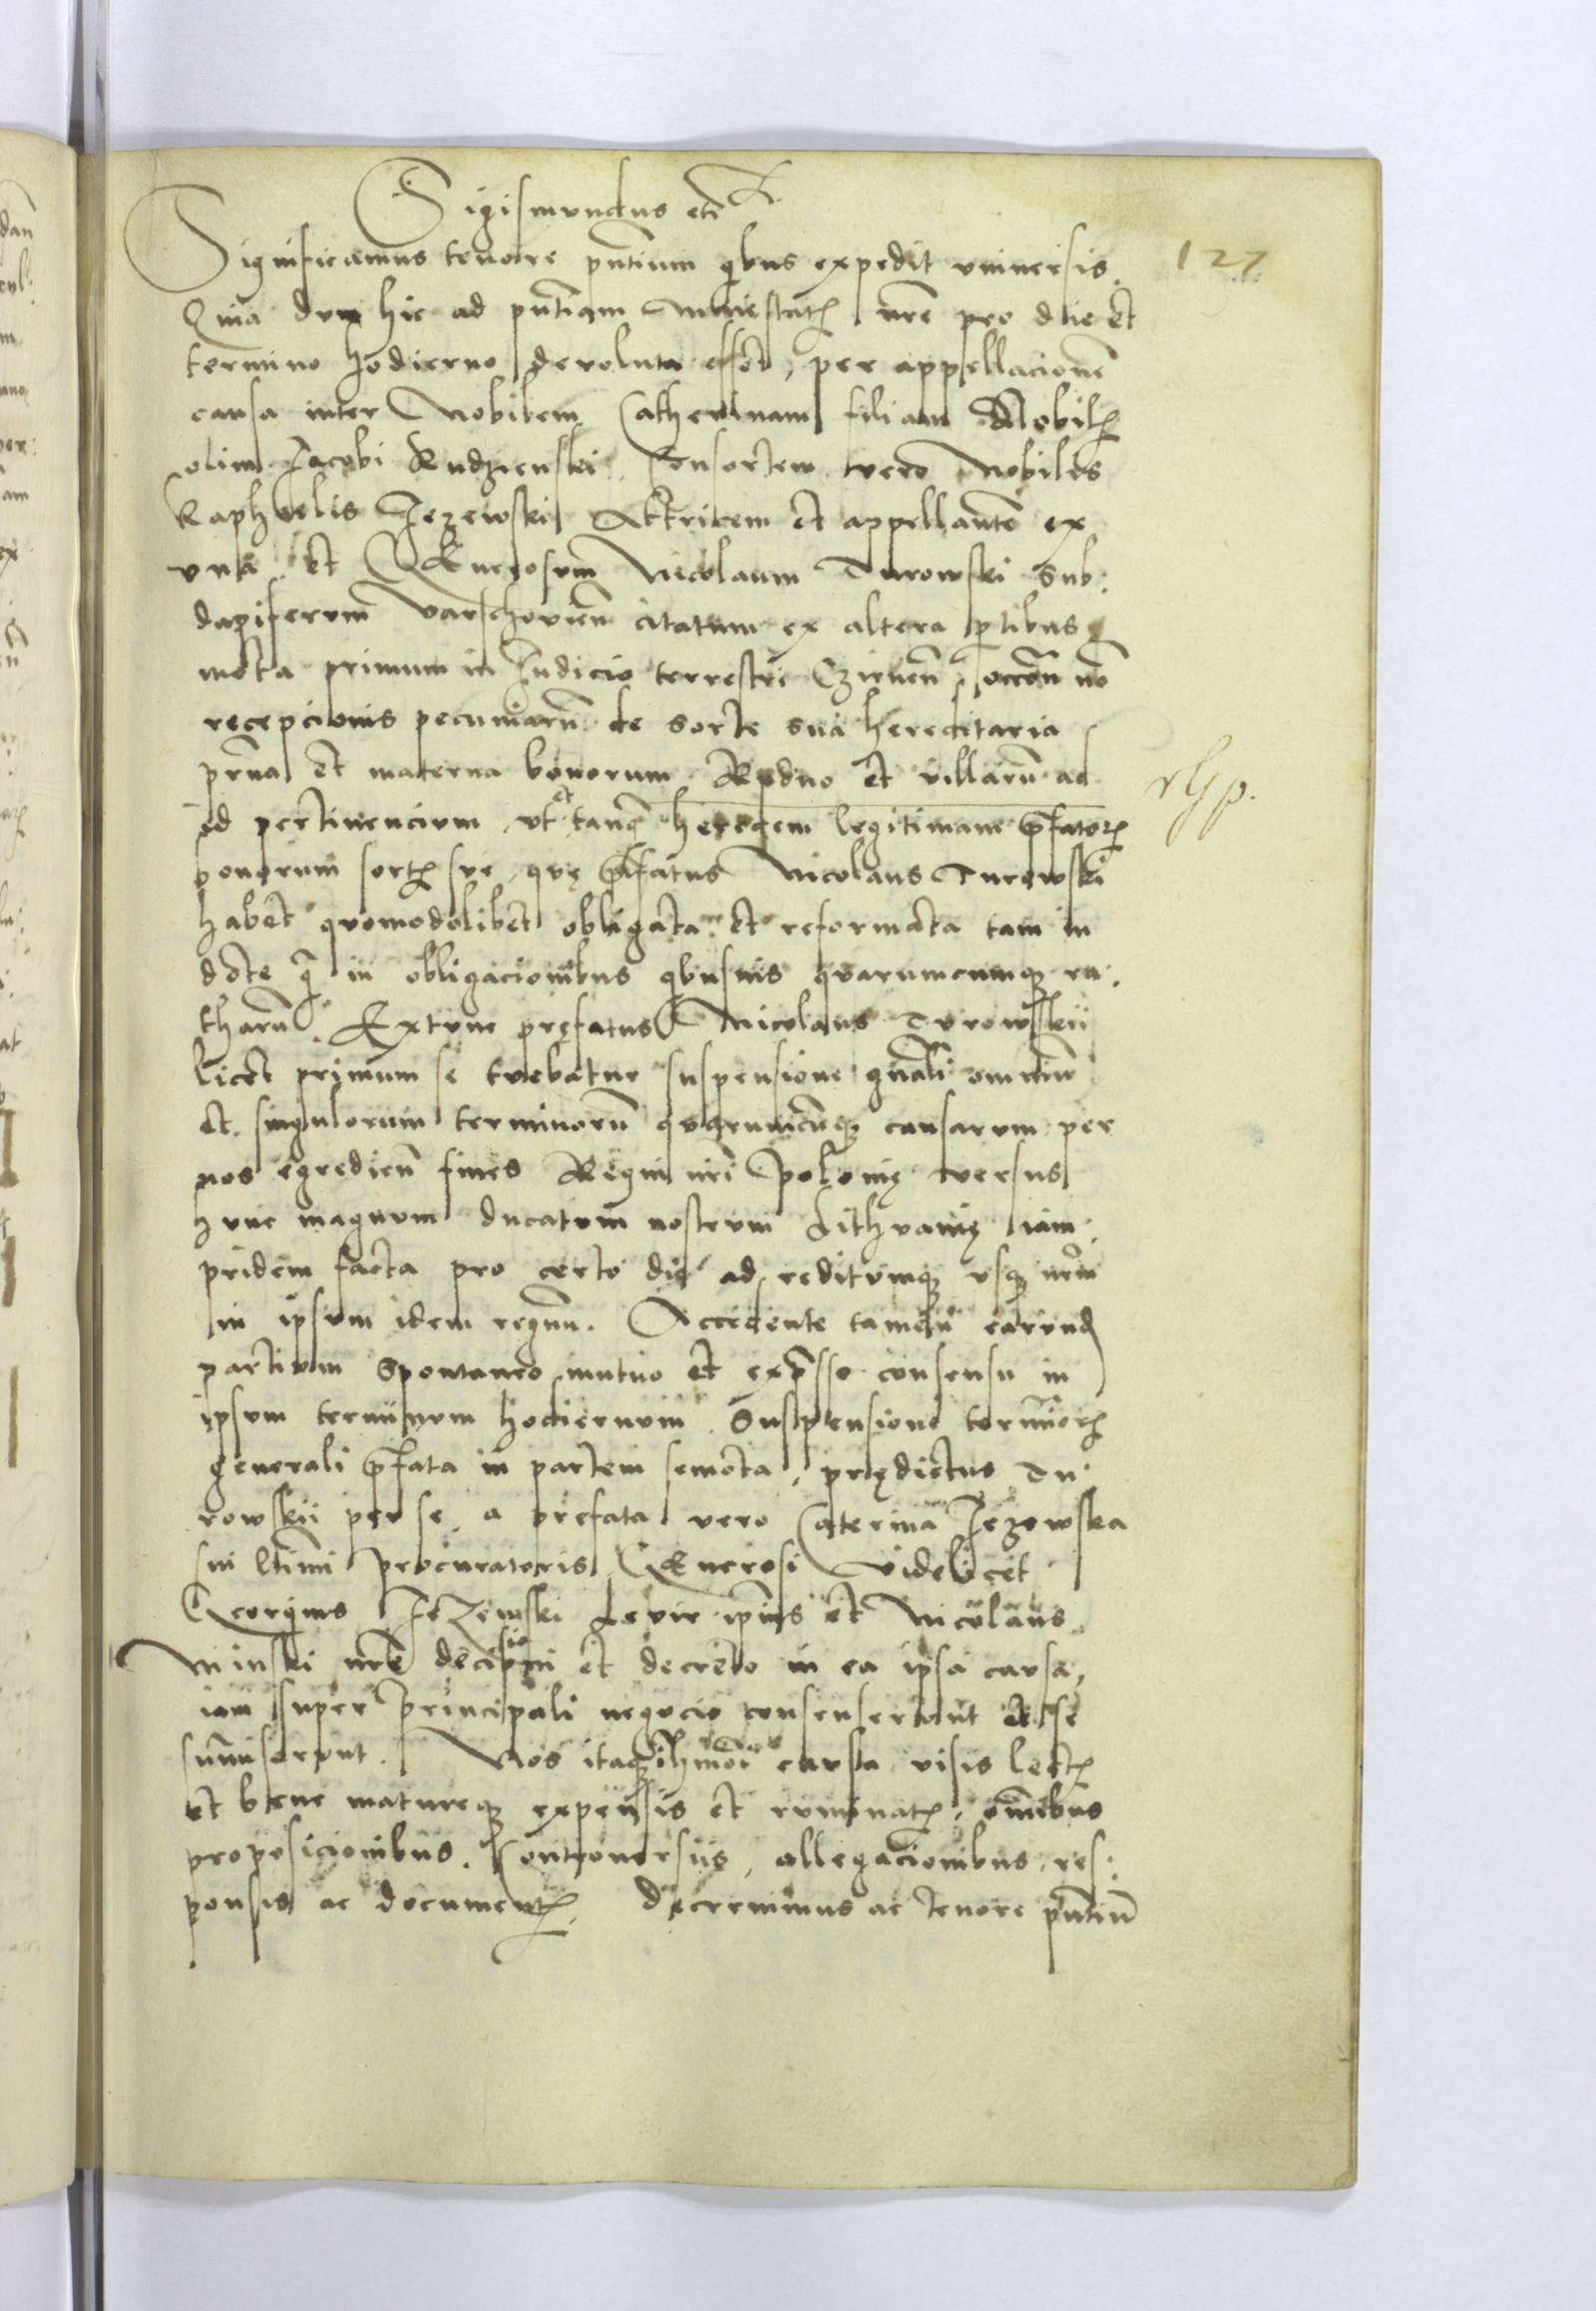 Sigismundus etc
Significamus tenore pñtium qbus expedit vniuersis
Quia dum hic ad pñtiam Maiestatis nrē pro die et
termino hodierno deuoluta esset, per appellacionē
causa inter Nobilem Catherinam filiam Nobilis
olim Jacobi Rudzienski, Consortem vero Nobilis
Raphaelis Jezewski Actricem et appellantē ex
vna et Generosum Nicolaum Turowski Sub:
dapiferum Varschouieñ citatum ex altera ptibus
mota primum in Judicio terrestri Czirneñ, occōne nō
recepcionis pecuniarū de sorte sua hereditaria
pr̄na et materna bonorum Rudno et villarū ad
id pertinencium vt et tanq̄ heredem legitimam p̄fatorum
bonorum sortis sue, quę p̄fatus Nicolaus Turowski
habet quomodolibet obligata et reformata tam in
dote q̄ in obligacionibus qbusuis quarumcumq; ra:
tharū. Extunc pręfatus Nicolaus Turowskii
licet primum se tuebatur suspensione gñali omnium
et singulorum terminorū quarumcūq; causarum per
nos egredieñ fines Regni nri Polonię versus
hunc magnum ducatum nostrum Lithuanię iam
pridem facta pro certo die ad reditumq; vsq; nrm
in ipsum idem regnum. Accedente tamen earund
partium spontaneo mutuo et exp̄sso consensu in
ipsum terminum hodiernum Suspensione terminorum
generali p̄fata in partem semota, prędictus Tu
rowskii per se, a prefata vero Caterina Jezewska
sui ltimi procuratoris Generosi videlicet
Georgius Jezewski Levir ipius et Nicolaus
Minski nrē decisioni et decreto in ea ipsa causa,
iam super principali negocio consenserunt et se
summiserunt. Nos itaq; ihmōi causa visis lectis
et bene matureq; expensis et ruminatis, omnibus
proposicionibus, Controuersiis, allegacionibus, res:
ponsis ac documentis, decreuimus ac tenore pñtiū
127